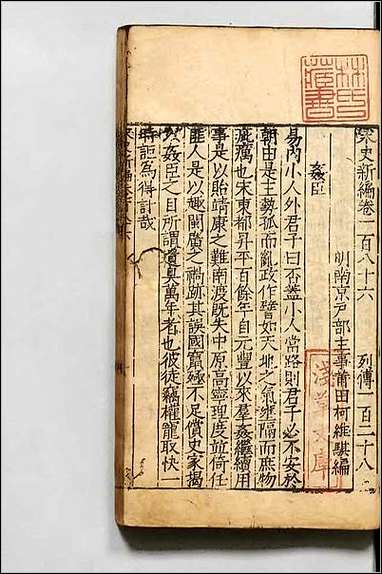 宋史新編卷一百八十六 列傳一百二十八
明南京戸部主事莆田柯維騏編
姦臣
易內小人外君子曰否蓋小人當路則君子必不安於
朝由是主勢孤而亂政作譬如天地之氣壅隔而庶物
疵癘也宋東都昇平百餘年自元豐以來羣姦繼續用
事是以貽靖康之難南渡旣失中原高寧理度竝倚任
匪人是以趣閩廣之禍跡其誤國竄殛不足償史家揭
以姦臣之目所謂遺臭萬年者也彼徒竊權寵取快一
時詎為得計哉
宋史新編卷
林氏藏書
淺草文庫